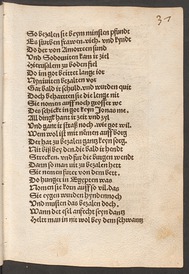 31
So bezalen sie beym minsten pfundt
Es sturben frawen vich und kyndt
Do der von Amorreen sünd
Und Sodomiten kam ir ziel
Hierusalem zu boden fiel
Do im got beitet lange ior
Nyniuiten bezalten vor
Gar bald ir schuld und wurden quit
Doch beharrten sie die lenge nit
Sie nomen auff noch grösser we
Des schickt in got keyn Jonas me
All ding hant ir zeit und zyl
Und gant ir straß noch wie got wil
Wem wol ist mit nemen auff borg
Der hat zu bezalen gantz keyn sorg
Nit biß bey den die bald ir hendt
Strecken und für die burgen wendt
Dann so man nit zu bezalen hett
Sie nemen fürer von dem bett
Do hunger in Egypten was
Nomen sie korn auff so vil das
Sie eygen wurden hyndennoch
Und musten das bezalen doch
Wann der esel anfecht seyn dantz
Helt man in nit wol bey dem schwantz